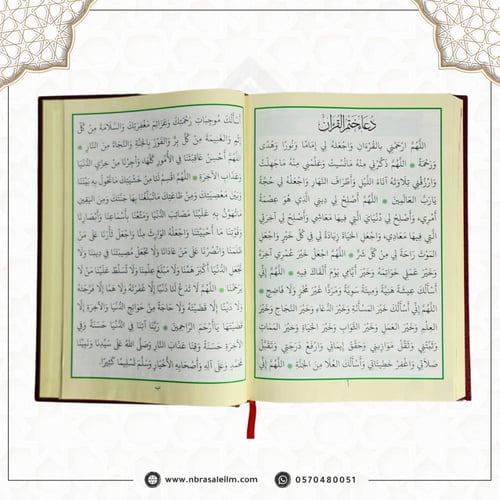 دعاء ختم القرآن
اللَّهُمَّ ارْحَمْنِي بِالْقُرْءَانِ وَاجْعَلْهُ لِي إِمَامًا وَنُورًا وَهُدًى
وَرَحْمَةً * اللَّهُمَّ ذَكِّرْنِي مِنْهُ مَانَسِيتُ وَعَلِّمْنِي مِنْهُ مَاجَهِلْتُ
وَارْزُقْنِي تِلَاوَتَهُ آنَاءَ اللَّيْلِ وَأَطْرَافَ النَّهَارِ وَاجْعَلْهُ لِي حُجَّةً
يَارَبَّ الْعَالَمِينَ * اللَّهُمَّ أَصْلِحْ لِي دِينِي الَّذِي هُوَ عِصْمَةُ
أَمْرِي، وَأَصْلِحْ لِي دُنْيَايَ الَّتِي فِيهَا مَعَاشِي، وَأَصْلِحْ لِي آخِرَتِي
الَّتِي فِيهَا مَعَادِي، وَاجْعَلِ الْحَيَاةَ زِيَادَةً لِي فِي كُلِّ خَيْرٍ وَاجْعَلِ
الْمَوْتَ رَاحَةً لِي مِنْ كُلِّ شَرٍّ * اللَّهُمَّ اجْعَلْ خَيْرَ عُمْرِي آخِرَهُ
وَخَيْرَ عَمَلِي خَوَاتِمَهُ وَخَيْرَ أَيَّامِي يَوْمَ أَلْقَاكَ فِيهِ * اللَّهُمَّ إِنِّي
أَسْأَلُكَ عِيشَةً هَنِيَّةً وَمِيتَةً سَوِيَّةً وَمَرَدًّا غَيْرَ مُخْزٍ وَلَا فَاضِحٍ *
اللَّهُمَّ إِنِّي أَسْأَلُكَ خَيْرَ الْمَسْأَلَةِ وَخَيْرَ الدُّعَاءِ وَخَيْرَ النَّجَاحِ وَخَيْرَ
الْعِلْمِ وَخَيْرَ الْعَمَلِ وَخَيْرَ الثَّوَابِ وَخَيْرَ الْحَيَاةِ وَخَيْرَ الْمَمَاتِ
وَثَبِّتْنِي وَثَقِّلْ مَوَازِينِي وَحَقِّقْ إِيمَانِي وَارْفَعْ دَرَجَتِي وَتَقَبَّلْ
صَلَاتِي وَاغْفِرْ خَطِيئَاتِي وَأَسْأَلُكَ الْعُلَا مِنَ الْجَنَّةِ * اللَّهُمَّ إِنِّي
أ
أَسْأَلُكَ مُوجِبَاتِ رَحْمَتِكَ وَعَزَائِمَ مَغْفِرَتِكَ وَالسَّلَامَةَ مِنْ كُلِّ
إِثْمٍ وَالْغَنِيمَةَ مِنْ كُلِّ بِرٍّ وَالْفَوْزَ بِالْجَنَّةِ وَالنَّجَاةَ مِنَ النَّارِ *
اللَّهُمَّ أَحْسِنْ عَاقِبَتَنَا فِي الْأُمُورِ كُلِّهَا، وَأَجِرْنَا مِنْ خِزْيِ الدُّنْيَا
وَعَذَابِ الْآخِرَةِ * اللَّهُمَّ اقْسِمْ لَنَا مِنْ خَشْيَتِكَ مَاتَحُولُ بِهِ بَيْنَنَا
وَبَيْنَ مَعْصِيَتِكَ وَمِنْ طَاعَتِكَ مَاتُبَلِّغُنَا بِهَا جَنَّتَكَ وَمِنَ الْيَقِينِ
مَاتُهَوِّنُ بِهِ عَلَيْنَا مَصَائِبَ الدُّنْيَا وَمَتِّعْنَا بِأَسْمَاعِنَا وَأَبْصَارِنَا
وَقُوَّتِنَا مَا أَحْيَيْتَنَا وَاجْعَلْهُ الْوَارِثَ مِنَّا وَاجْعَلْ ثَأْرَنَا عَلَى مَنْ
ظَلَمَنَا وَانْصُرْنَا عَلَى مَنْ عَادَانَا وَلَا تَجْعَلْ مُصِيبَتَنَا فِي دِينِنَا وَلَا
تَجْعَلِ الدُّنْيَا أَكْبَرَ هَمِّنَا وَلَا مَبْلَغَ عِلْمِنَا وَلَا تُسَلِّطْ عَلَيْنَا مَنْ لَا
يَرْحَمُنَا * اللَّهُمَّ لَا تَدَعْ لَنَا ذَنْبًا إِلَّا غَفَرْتَهُ وَلَا هَمًّا إِلَّا فَرَّجْتَهُ
وَلَا دَيْنًا إِلَّا قَضَيْتَهُ وَلَا حَاجَةً مِنْ حَوَائِجِ الدُّنْيَا وَالْآخِرَةِ إِلَّا
قَضَيْتَهَا يَاأَرْحَمَ الرَّاحِمِينَ * رَبَّنَا آتِنَا فِي الدُّنْيَا حَسَنَةً وَفِي
الْآخِرَةِ حَسَنَةً وَقِنَا عَذَابَ النَّارِ وَصَلَّى اللهُ عَلَى سَيِّدِنَا وَنَبِيِّنَا
مُحَمَّدٍ وَعَلَى آلِهِ وَأَصْحَابِهِ الْأَخْيَارِ وَسَلَّمَ تَسْلِيمًا كَثِيرًا.
ب
www.nbrasaleilm.com
0570480051